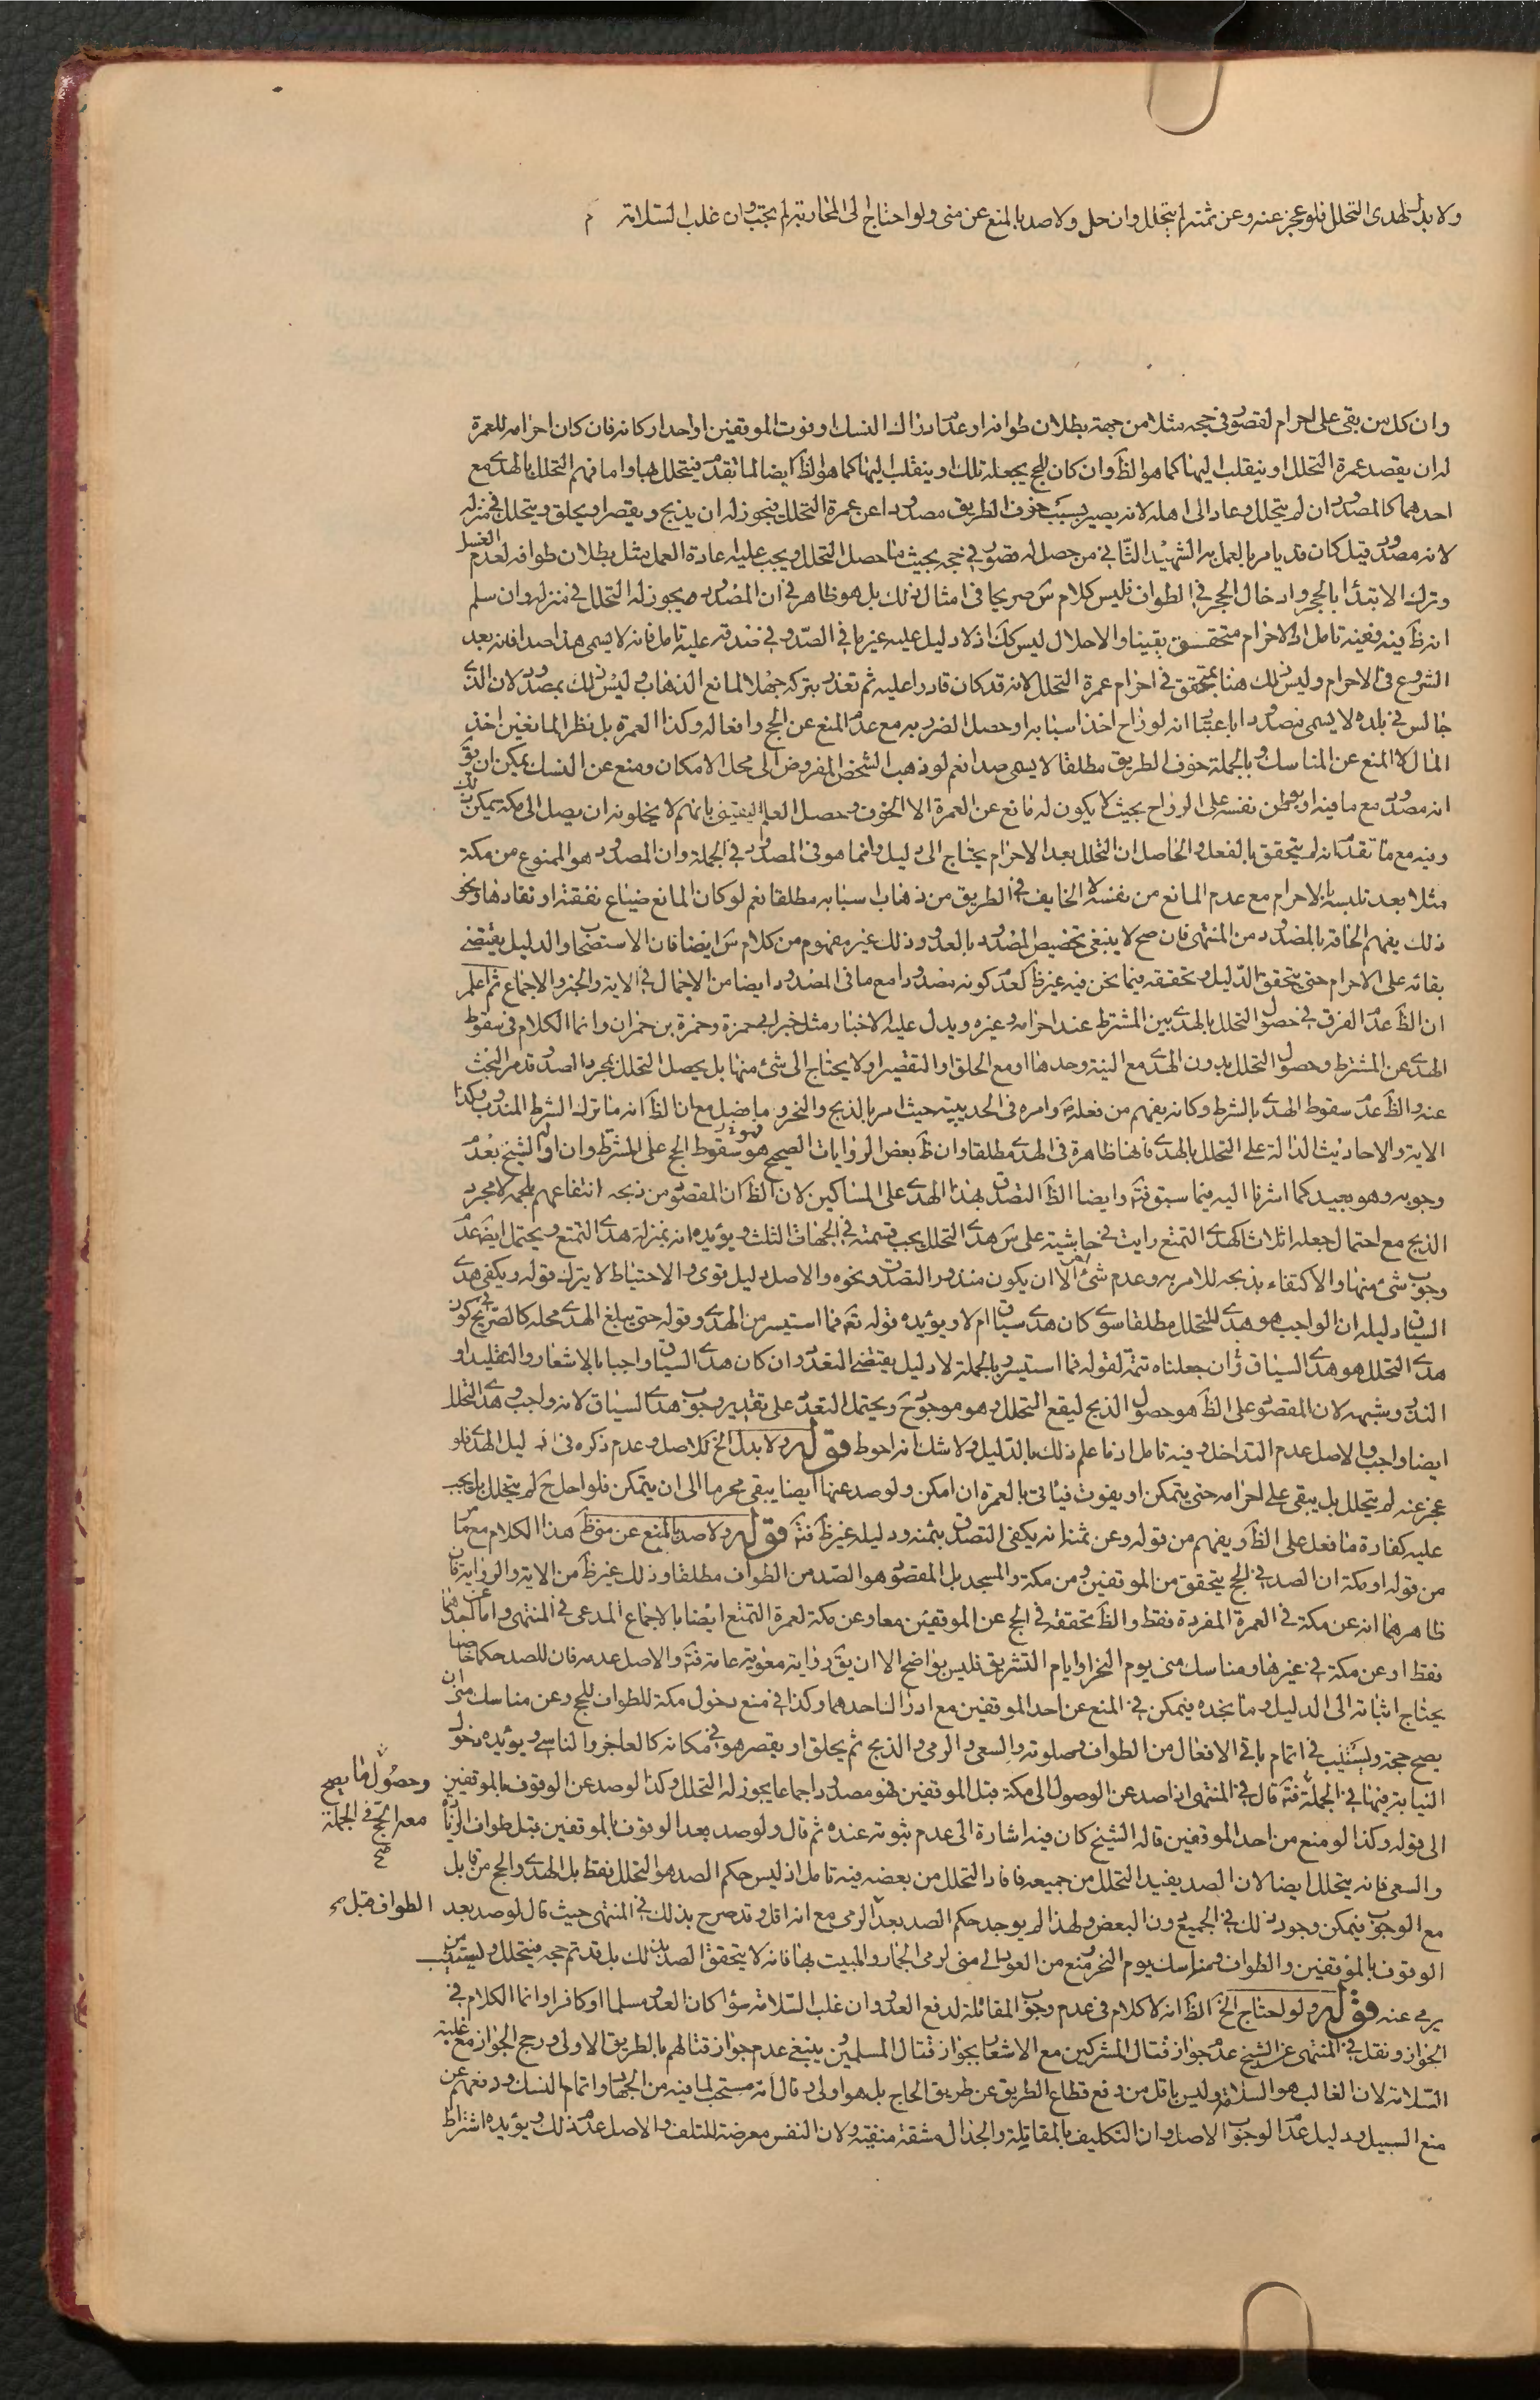 ولا بدل لهدى التحلل فلو عجز عنه وعن ثمنه لم يتحلل وان حل ولا صد بالمنع عن منى ولو احتاج الى المحاربة لم يجب وان غلب السلامة
وان كل من بقى على احرام لقصور فى حجه مثلا من جهة بطلان طوافه او عدم ادراك النسك او فوت الموقفين او احد اركانه فان كان احرامه للعمرة
له ان يقصد عمرة التحلل او ينقلب اليها كما هو الظ وان كان للحج يجعله تلك او ينقلب اليها كما هو الظ ايضا لما تقدم فيتحلل بها واما فهم التحلل بالهدى مع
احدهما كالمصدود ان لم يتحلل وعاد الى اهله لانه يصير بسبب خوف الطريق مصدودا عن عمرة التحلل فيجوز له ان يذبح ويقصر او يحلق ويتحلل فى منزله
لانه مصدود قيل كان قد يامر بالعمل به الشهيد الثانى من حصل له قصور فى حجه بحيث ما حصل التحلل ويجب عليه اعادة العمل مثل بطلان طوافه لعدم الغسل
وترك الابتداء بالحجر وادخال الحجر فى الطواف فليس كلام س صريحا فى امثال ذلك بل هو ظاهر فى ان المصدود يجوز له التحلل فى منزله وان سلم
انه ظ فيه ففيه تامل اذ الاحرام متحقق يقينا والاحلال ليس كك اذ لا دليل عليه غير ما فى الصد وفى صدقه عليه تامل فانه لا يسمى هذا صدا فانه بعد
الشروع فى الاحرام وليس ذلك هنا بمتحقق فى احرام عمرة التحلل لانه قد كان قادرا عليه ثم تعذر بتركه جهلا لمانع الذهاب وليس ذلك بمصدود لان الذى
جالس فى بلده لا يسمى مصدودا باعتبار انه لو راح اخذ اسبابه او حصل الضرر به مع عدم المنع عن الحج وافعاله وكذا العمرة بل نظر المانعين اخذ
المال لا المنع عن المناسك وبالجملة خوف الطريق مطلقا لا يسمى صدا نعم لو ذهب الشخص المفروض الى محل الامكان ومنع عن النسك يمكن ان يق
انه مصدود مع ما فيه او يوطن نفسه على الرواح بحيث لا يكون له مانع عن العمرة الا الخوف وحصل العلم اليقينى بانهم لا يخلونه ان يصل الى مكة يمكن ذلك
وفيه مع ما تقدم انه لم يتحقق بالفعل والحاصل ان التحلل بعد الاحرام يحتاج الى دليل وانما هو فى المصدود فى الجملة وان المصدود هو الممنوع من مكة
مثلا بعد تلبسه بالاحرام مع عدم المانع من نفسه لا الخايف فى الطريق من ذهاب اسبابه مطلقا نعم لو كان المانع ضياع نفقته او نفادها ونحو
ذلك يفهم الحاقه بالمصدود من المنتهى فان صح لا ينبغى تخصيص المصدود بالعدو وذلك غير مفهوم من كلام س ايضا فان الاستصحاب والدليل يقتضى
بقائه على الاحرام حتى يتحقق الدليل وتحققه فيما نحن فيه غير ظ كعدم كونه مصدودا مع ما فى المصدود ايضا من الاجمال فى الاية والخبر والاجماع ثم اعلم
ان الظ عدم الفرق فى حصول التحلل بالهدى بين المشترط عند احرامه وغيره ويدل عليه الاخبار مثل خبر ابى حمزة وحمزة بن حمران وانما الكلام فى سقوط
الهدى عن المشترط وحصول التحلل بدون الهدى مع النية وحدها او مع الحلق او التقصير او لا يحتاج الى شئ منها بل يحصل التحلل بمجرد الصد وقد مر البحث
عنه والظ عدم سقوط الهدى بالشرط وكانه يفهم من فعله ص وامره فى الحديبية حيث امر بالذبح والنحر وما فصل مع ان الظ انه ما ترك الشرط المندوب وكذا
الاية والاحاديث الدالة على التحلل بالهدى فانها ظاهرة فى الهدى مطلقا وان ظ بعض الروايات الصحيح هو سقوط الحج على المشترط وان اوله الشيخ بعدم
وجوبه وهو بعيد كما اشرنا اليه فيما سبق فته وايضا الظ التصدق بهذا الهدى على المساكين لان الظ ان المقصود من ذبحه انتفاعهم بلحمه لا مجرد
الذبح مع احتمال جعله اثلاثا كهدى التمتع رايت فى حاشية على س هدى التحلل يجب قسمته فى الجهات الثلث ويؤيده انه بمنزلة هدى التمتع ويحتمل ايضا عدم
وجوب شئ منها والاكتفاء بذبحه للامر به وعدم شئ اخر الا ان يكون منذور التصدق ونحوه والاصل دليل قوى والاحتياط لا يترك قوله ويكفى هدى
السياق دليله ان الواجب هو هدى للتحلل مطلقا سوى كان هدى سياق ام لا ويؤيده قوله تعه فما استيسر من الهدى وقوله حتى يبلغ الهدى محله كالصريح فى كون
هدى التحلل هو هدى السياق وان جعلناه تتمة لقوله فما استيسر وبالجملة لا دليل يقتضى التعدد وان كان هدى السياق واجبا بالاشعار والتقليد او
النذر وشبهه لان المقصود على الظ هو حصول الذبح ليقع التحلل وهو موجود ح ويحتمل التعدد على تقدير وجوب هدى السياق لانه واجب وهدى التحلل
ايضا واجب والاصل عدم التداخل وفيه تامل اذ ما علم ذلك بالدليل ولا شك انه احوط قوله ولا بدل الخ للاصل وعدم ذكره فى دليل الهدى فلو
عجز عنه لم يتحلل بل يبقى على احرامه حتى يتمكن او يفوت فياتى بالعمرة ان امكن ولو صد عنها ايضا يبقى محرما الى ان يتمكن فلو احل ح لم يتحلل بل يجب
عليه كفارة ما فعل على الظ ويفهم من قوله وعن ثمنه انه يكفى التصدق بثمنه ودليله غير ظ فته قوله ولا صد بالمنع عن منى ظ هذا الكلام مع ما مر
من قوله او مكة ان الصد فى الحج يتحقق من الموقفين ومن مكة والمسجد بل المقصود هو الصد من الطواف مطلقا وذلك غير ظ من الاية والرواية فان
ظاهرهما انه عن مكة فى العمرة المفردة فقط والظ تحققه فى الحج عن الموقفين معا وعن مكة لعمرة التمتع ايضا بالاجماع المدعى فى المنتهى واما عن احدهما
فقط او عن مكة فى غيرها ومناسك منى يوم النحر او ايام التشريق فليس بواضح الا ان يق رواية معوية عامة فته والاصل عدمه فان للصد حكما خاصا
يحتاج اثباته الى الدليل وما نجده فيمكن فى المنع عن احد الموقفين مع ادراك احدهما وكذا فى منع دخول مكة للطواف للحج وعن مناسك منى ان
يصح حجه ويستنيب فى اتمام باقى الافعال من الطواف وصلوته والسعى والرمى والذبح ثم يحلق او يقصر هو فى مكانه كالعاجز والناسى ويؤيده دخول
النيابة فيها فى الجملة فته قال فى المنتهى اذا صد عن الوصول الى مكة قبل الموقفين فهو مصدود اجماعا يجوز له التحلل وكذا لو صد عن الوقوف بالموقفين
وحصول ما يصح
معه الحج فى الجملة
صح
الى قوله وكذا لو منع من احد الموقفين قاله الشيخ كان فيه اشارة الى عدم ثبوته عنده ثم قال ولو صد بعد الوقوف بالموقفين قبل طواف الزيارة
والسعى فانه يتحلل ايضا لان الصد يفيد التحلل من جميعه فافاد التحلل من بعضه فيه تامل اذ ليس حكم الصد هو التحلل فقط بل الهدى والحج من قابل
مع الوجوب فيمكن وجود ذلك فى الجميع دون البعض ولهذا لم يوجد حكم الصد بعد الرمى مع انه اقل وقد صرح بذلك فى المنتهى حيث قال لو صد بعد
الطواف قبل
الوقوف بالموقفين والطواف ومناسك يوم النحر منع من العود الى منى لرمى الجمار والمبيت بها فانه لا يتحقق الصد بذلك بل قد تم حجه فيتحلل ويستنيب من
يرمى عنه قوله ولو احتاج الخ الظ انه لا كلام فى عدم وجوب المقاتلة لدفع العدو وان غلب السلامة سواء كان العدو مسلما او كافرا وانما الكلام فى
الجواز ونقل فى المنتهى عن الشيخ عدم جواز قتال المشركين مع الاشعار بجواز قتال المسلمين وينبغى عدم جواز قتالهم بالطريق الاولى ورجح الجواز مع غلبة
السلامة لان الغالب هو السلامة وليس باقل من دفع قطاع الطريق عن طريق الحاج بل هو اولى وقال انه مستحب لما فيه من الجهاد واتمام النسك ودفعهم عن
منع السبيل ودليل عدم الوجوب الاصل وان التكليف بالمقاتلة والجدال مشقة منفية ولان النفس معرضة للتلف والاصل عدم ذلك ويؤيده اشتراط